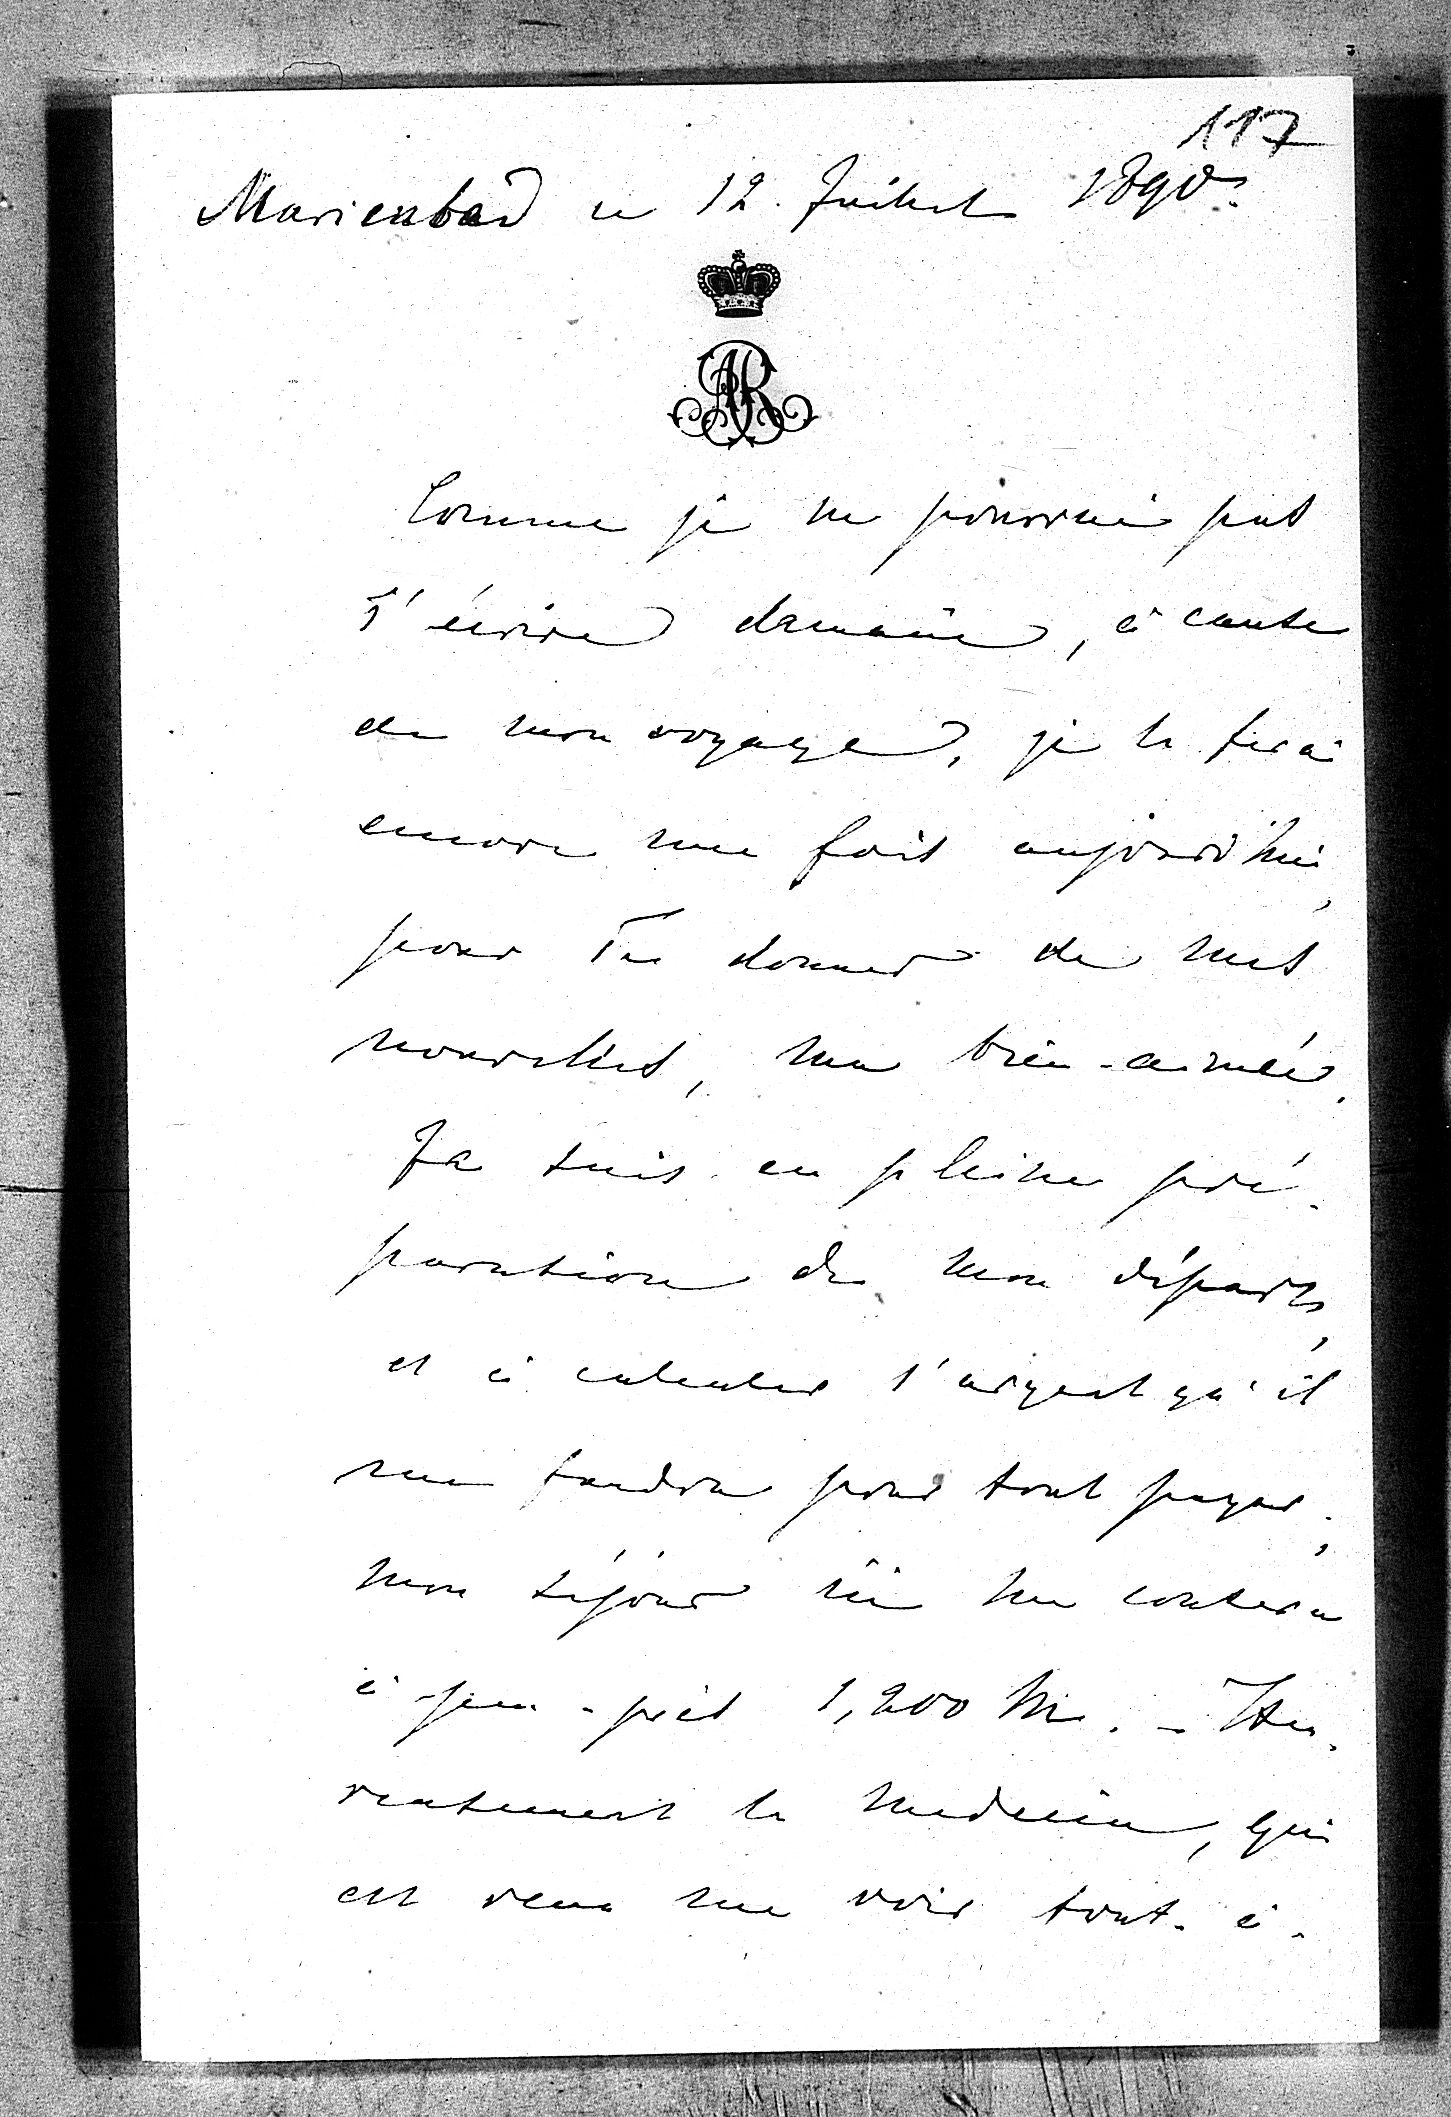 117
Marienbad ce 12. Juillet 1890.
AR
Comme je ne pourrai pas
T'écrire demain, à cause
de mon voyage, je le ferai
encore une fois aujourd'hui,
pour Te donner de mes
nouvelles, ma bien-aimée.
Je suis en pleine pré-
paration de mon départ,
et à calculer l'argent qu'il
me faudra pour tout payer;
mon séjour ici me coutera
à-peu-près 1,200 M. - Heu-
reusement le medecin, qui
est venu me voir tout-à-